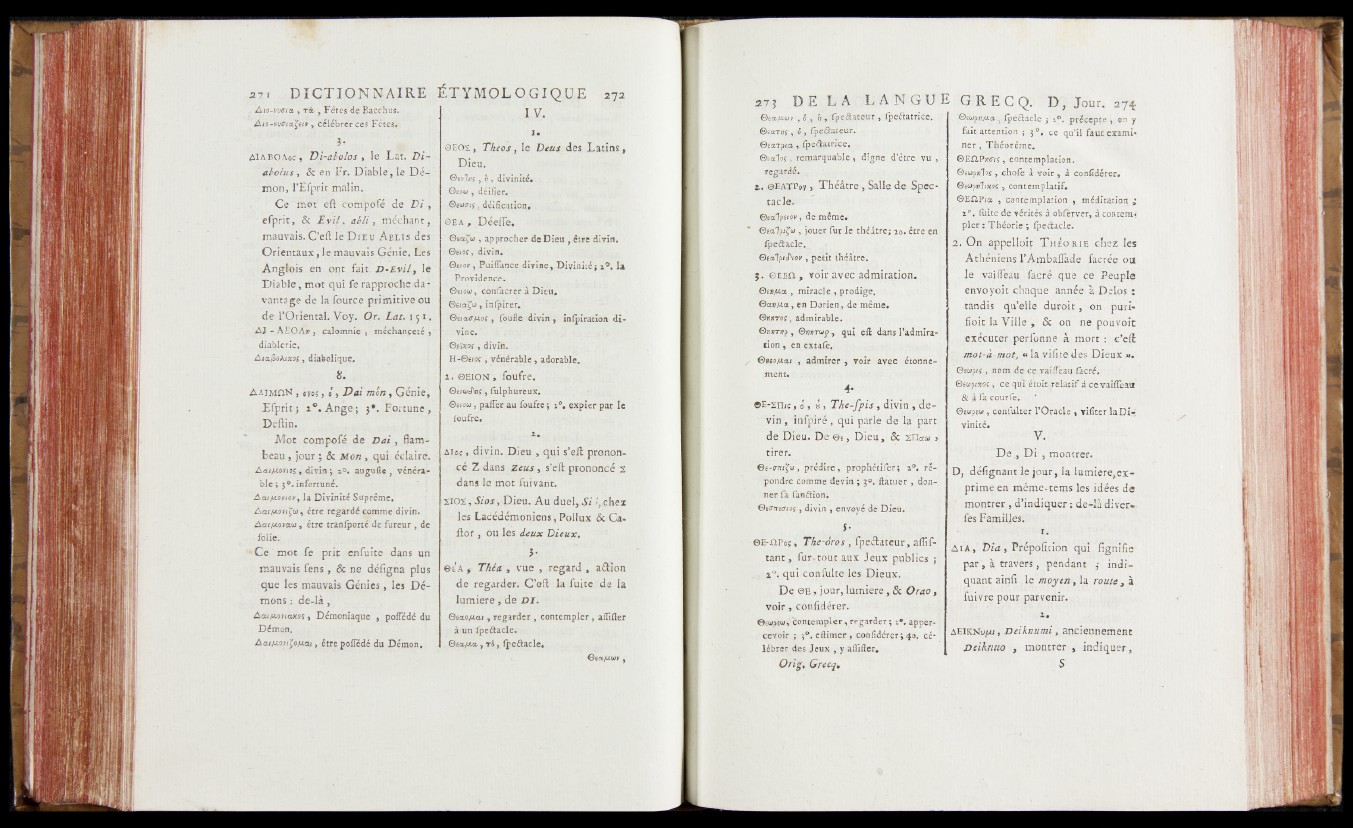 271 DICTIONNAIRE ÉTYMOLOGIQUE 272
Διο-νυσια, τὰ, Fêtes de Bacchus.
Διο-νυσιαζειν, célébrer ces Fêtes.
3.
ΔΙΑΒΟΛος, Di-abolos, le Lat. Di-
abolus, & en Fr. Diable, le Dé-
mon, l'Eſprit malin.
Ce mot eſt compoſé de Di,
eſprit, & Evil, abli, méchant,
mauvais. C'eſt le Dieu Ablis des
Orientaux, le mauvais Génie. Les
Anglois en ont fait D-Evil, le
Diable, mot qui ſe rapproche da-
vantage de la ſource primitive ou
de l'Oriental. Voy. Or. Lat. 151.
calomnie, méchanceté,
diablerie.
Διαβολικος, diabolique.
8.
ΔΑΙΜΩΝ, ονος, ὁ, Daï món, Génie,
Eſprit; 2°. Ange; 3°. Fortune,
Deſtin.
Mot compoſé de Dai, flam-
beau, jour; & Mon, qui éclaire.
Δαιμονιος, divin; 2°. auguſte, vénéra-
ble; 3°. infortuné.
Δαιμονιον, la Divinité Suprême.
Δαιμονιζω, être regardé comme divin.
Δαιμοναω, être tranſporté de fureur, de
folie.
Ce mot ſe prit enſuite dans un
mauvais ſens, & ne déſigna plus
que les mauvais Génies, les Dé-
mons: de-là,
Δαιμονιακος, Démoniaque, poſſédé du
Démon.
Δαιμονιζομαι, être poſſédé du Démon.
IV.
1.
ΘΕΟΣ, Theos, le Deus des Latins,
Dieu.
Θεοτης, ἡ, divinité.
Θεοω, déifier.
Θεωσις, déification.
ΘΕΑ, Déeſſe.
Θεαζω, approcher de Dieu, être divin.
Θειος, divin.
Θειον, Puiſſance divine, Divinité; 2°. la
Providence.
Θειοω, conſacrer à Dieu.
Θειαζω, inſpirer.
Θειασμος, ſoufle divin, inſpiration di-
vine.
Θεικος, divin.
Η-Θειος, vénérable, adorable.
2. ΘΕΙΟΝ, ſoufre.
Θειωδης, ſulphureux.
Θειοω, paſſer au ſoufre; 2°. expier par le
ſoufre.
2.
ΔΙος, divin. Dieu, qui s'eſt pronon-
cé Z dans Zeus, s'eſt prononcé Σ
dans le mot ſuivant.
ΣΙΟΣ, Sios, Dieu. Au duel, chez
les Lacédémoniens, Pollux & Ca-
ſtor, ou les deux Dieux.
3.
ΘέΑ, Théa, vue, regard, action
de regarder. C'eſt la ſuite de la
lumiere, de DI.
Θεαομαι, regarder, contempler, aſſiſter
à un ſpectacle.
Θεαμα, τὸ, ſpectacle.
Θεαμων,
273 DE LA LANGUE GRECQ. D, Jour. 274
Θεαμων, ὁ, ἡ, ſpectateur, ſpectatrice.
Θεατης, ὁ, ſpectateur.
Θεατρια, ſpectatrice.
Θεατος, remarquable, digne d'être vu,
regardé.
2. ΘΕΑΤΡον, Théâtre, Salle de Spec-
tacle.
Θεατρειον, de même.
Θεατριζω, jouer ſur le théâtre; 2o. être en
ſpectacle.
Θεατριδιον, petit théâtre.
3. ΘΕΕΩ, voir avec admiration.
Θηημα, miracle, prodige.
Θαημα, en Dorien, de même.
Θηητος, admirable.
Θηητηρ, Θηητωρ, qui eſt dans l'admira-
tion, en extaſe.
Θηεομαι, admirer, voir avec étonne-
ment.
4.
ΘΕ-ΣΠις, ὁ, ἡ, The-ſpis, divin, de-
vin, inſpiré, qui parle de la part
de Dieu. De Θε, Dieu, & ΣΠαω,
tirer.
Θε-σπιζω, prédire, prophétiſer; 2°. ré-
pondre comme devin; 3°. ſtatuer, don-
ner ſa ſanction.
Θεσπεσιος, divin, envoyé de Dieu.
5.
ΘΕ-ΩΡος, The-óros, ſpectateur, aſſiſ-
tant, ſur-tout aux Jeux publics;
2°. qui conſulte les Dieux.
De ΘΕ, jour, lumiere, & Orao,
voir, conſidérer.
Θεωρεω, contempler, regarder; 2°. apper-
cevoir; 3°. eſtimer, conſidérer; 4o. cé-
lébrer des Jeux, y aſſiſter.
Orig. Grecq.
Θεωρημα, ſpectacle; 2°. précepte, on y
fait attention; 3°. ce qu'il faut exami-
ner, Théorême.
ΘΕΩΡησις, contemplation.
Θεωρητος, choſe à voir, à conſidérer.
Θεωρητικος, contemplatif.
ΘΕΩΡια, contemplation, méditation;
2°. ſuite de vérités à obſerver, à contem-
pler: Théorie; ſpectacle.
2. On appelloit Théorie chez les
Athéniens l'Ambaſſade ſacrée ou
le vaiſſeau ſacré que ce Peuple
envoyoit chaque année à Delos:
tandis qu'elle duroit, on puri-
fioit la Ville, & on ne pouvoit
exécuter perſonne à mort: c'eſt
mot-à-mot, « la viſite des Dieux ».
Θεωρις, nom de ce vaiſſeau ſacré.
Θεωρικος, ce qui étoit relatif à ce vaiſſeau
& à ſa courſe.
Θεωρεω, conſulter l'Oracle, viſiter la Di-
vinité.
V.
De, Di, montrer.
D, déſignant le jour, la lumiere, ex-
prime en même-tems les idées de
montrer, d'indiquer: de-là diver-
ſes Familles.
1.
ΔΙΑ, Dia, Prépoſition qui ſignifie
par, à travers, pendant; indi-
quant ainſi le moyen, la route, à
ſuivre pour parvenir.
2.
ΔΕΙΚΝυμι, Deiknumi, anciennement
Deiknuo, montrer, indiquer,
S